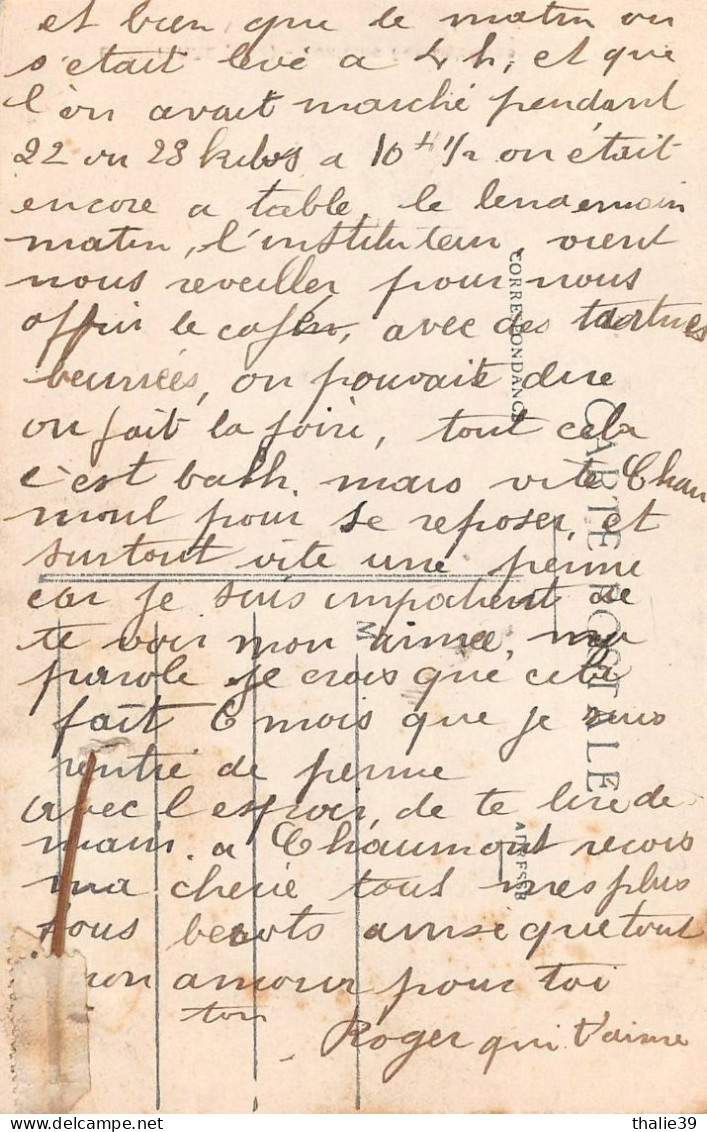 et bien que le matin on
s'etait levé a 4 h, et que
l'on avait marché pendant
22 ou 23 kilos a 10 H 1/2 on était
encore a table, le lendemain
matin, l'instituteur, vient
nous reveiller pour nous
offrir le café, avec des tartines
beurrées, on pouvait dire
on fait la foire, tout cela
c'est bath, mais vite Chau
mont pour se reposer, et
surtout vite une perme
car je suis impatient de
te voir mon aimée, ma
parole je crois que cela
fait 6 mois que je suis
rentré de perme
avec l'espoir, de te lire de
main a Chaumont recois
ma cherie tous mes plus
fous becots ainsi que tout
mon amour pour toi
ton
Roger qui t'aime
CARTE POSTALE
CORRESPONDANCE
ADRESSE
M
thalie39